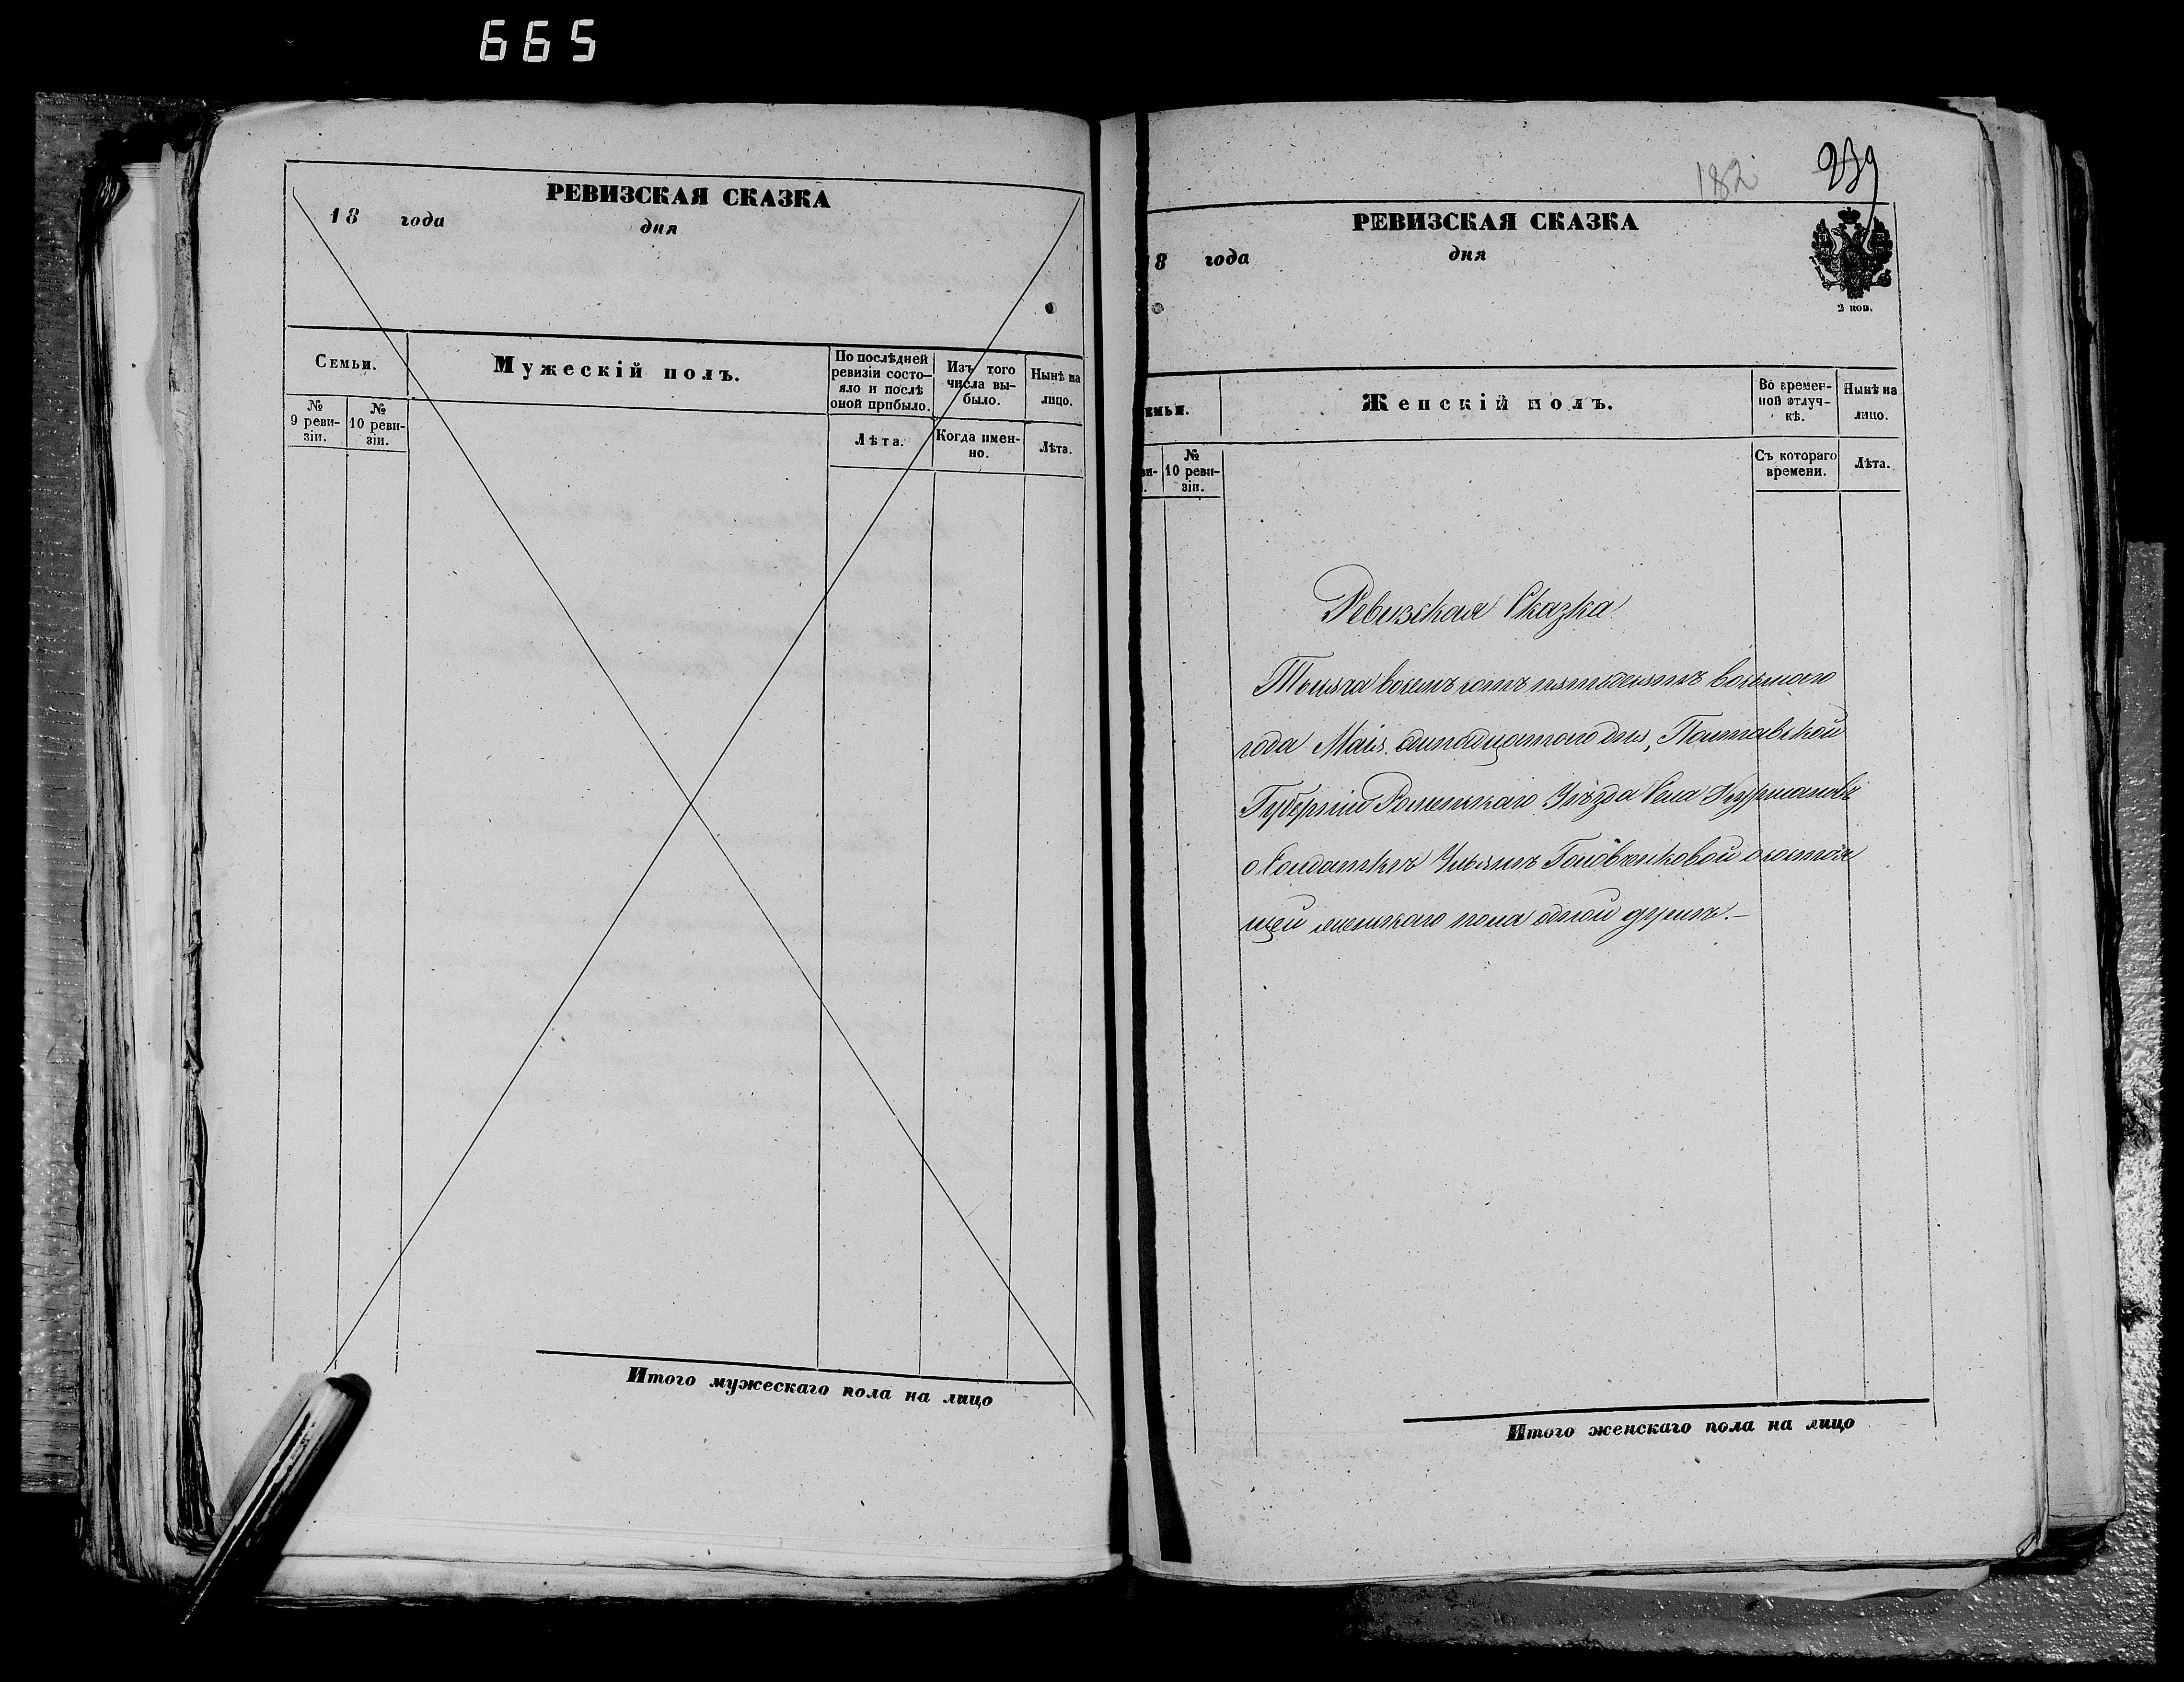 665
РЕВИЗСКАЯ СКАЗКА
18 года дня
Семьи.
Мужескій полъ.
По послѣдней
ревизіи состо-
яло и послѣ
оной прибыло.
Изъ того
числа вы-
было.
Нынѣ на
лицо.
№
9 реви-
зіи.
№
10 реви-
зіи.
Лѣта.
Когда имен-
но.
Лѣта.
Итого мужескаго пола на лицо
182 239
РЕВИЗСКАЯ СКАЗКА
8 года дня
2 коп.
емьи.
Женскій полъ.
Во времен-
ной отлуч-
кѣ.
Нынѣ на
лицо.
ви-
.
№
10 реви-
зіи.
Съ котораго
времени.
Лѣта.
Ревизская Сказка
Тысяча восемъ сотъ пятдесятъ восьмаго
года Маія дня, Полтавской
Губерніи Роменскаго Уѣзда Села Курмановъ
о Солдаткѣ Ульянѣ Головченковой состоя
щей женскаго пола одной душѣ.–
Итого женскаго пола на лицо